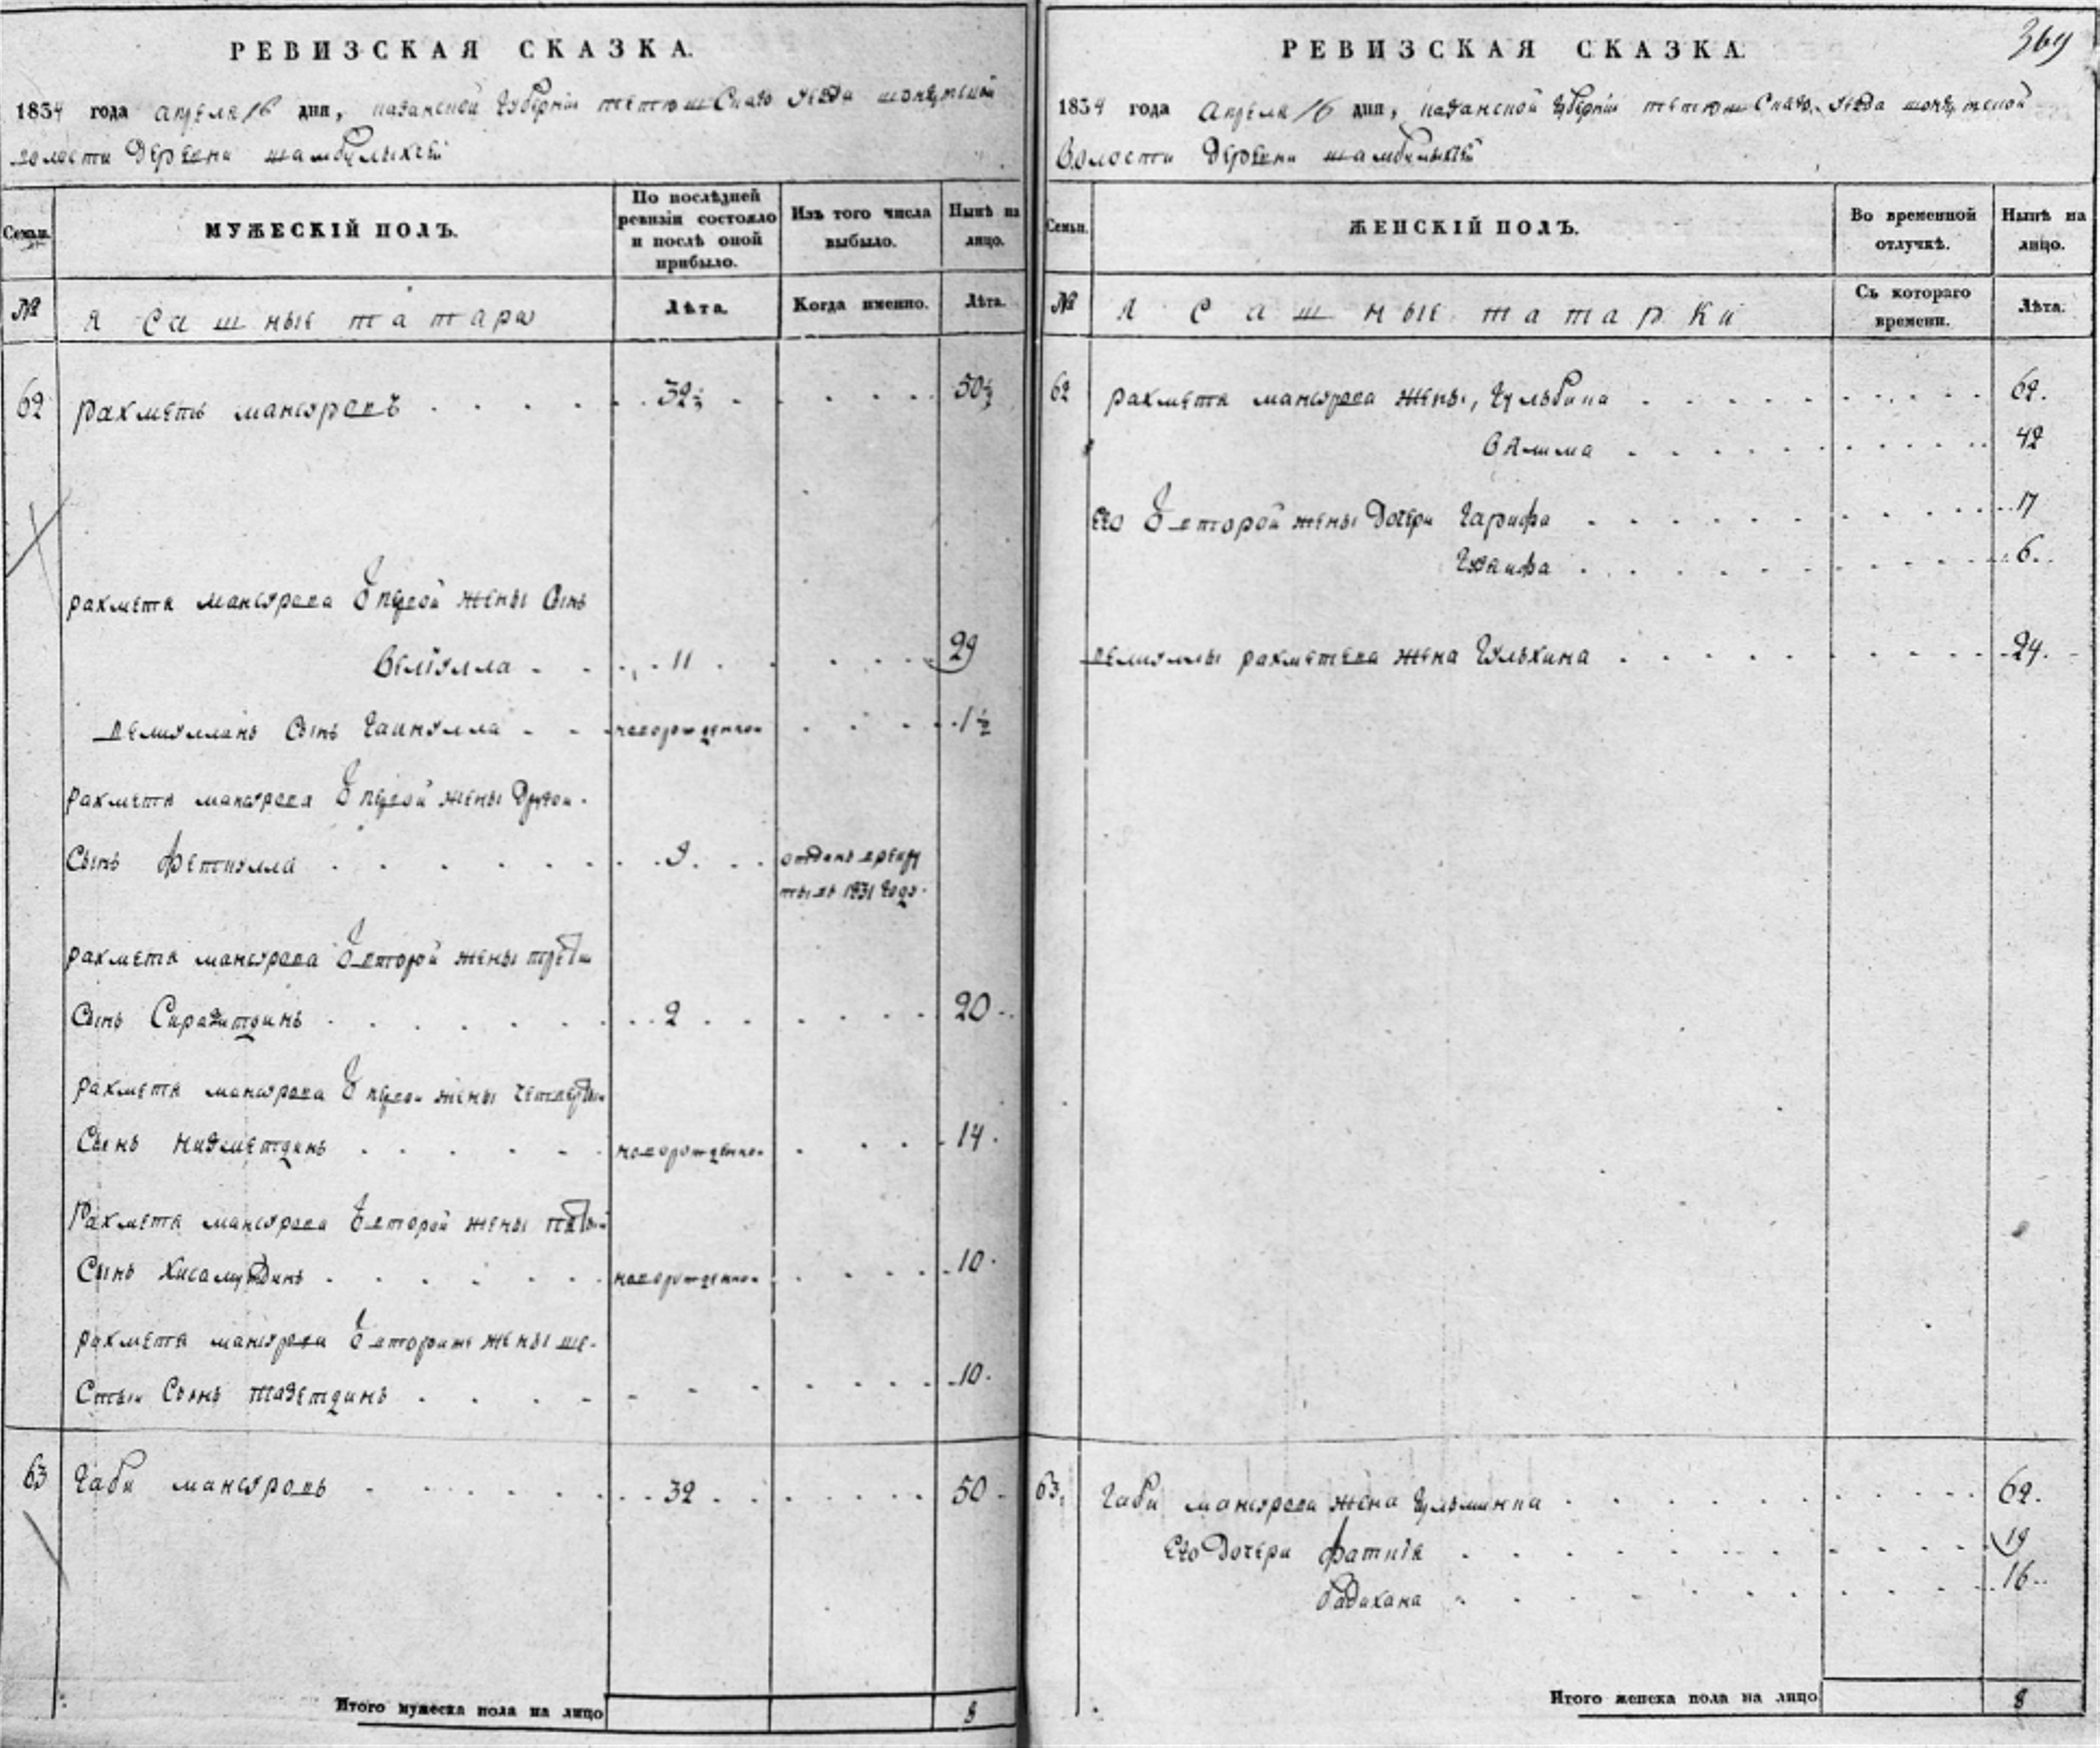 РЕВИЗСКАЯ СКАЗКА.
1834 года апреля 16 дня, казанской губернии тетюшскаго уезда шонгутской
волости деревни шамбулыхчей
Семьи.
МУЖЕСКІЙ ПОЛЪ.
По послѣдней ревизіи состояло и послѣ оной прибыло.
Изъ того числа выбыло.
Нынѣ на лицо.
№
Ясашные татара
Лѣта.
Когда именно.
Лѣта.
62 рахметъ мансуровъ 32½ 50½
рахметя мансурова Ѿ первой жены сынъ
велiулла 11 29
велиуллинъ сынъ гаинулла новорожденной 1½
рахметя мансурова Ѿ первой жены другои
сынъ фетхулла 9 отданъ врекру
ты въ 1831 году
рахметя мансурова Ѿ второй жены третiи
сынъ Сиразитдинъ 2 20
рахметя мансурова Ѿ первои жены четвертыи
Сынъ низметдинъ новорожденнои 14
Рахметя мансурова Ѿ второй жены пятыи
Сынъ хисамутдинъ новорожденнои 10
рахметя мансурова Ѿ жены ше-
стыи Сынъ тазетдинъ 10
63 габи мансуровъ 32 50
Итого мужеска пола на лицо 8
РЕВИЗСКАЯ СКАЗКА.
369
1834 года апреля 16 дня, казанской губернии тетюшскаго уезда шонгутской
Волости деревни шамбулыхчей
Семьи.
ЖЕНСКІЙ ПОЛЪ.
Во временной отлучкѣ.
Нынѣ на лицо.
№
Ясашные татарки
Съ котораго времени.
Лѣта.
62 рахметя мансурова жены, гульбина 62.
вялима 42
его Ѿ второй жены дочери гарифа 17
6.
велиуллы рахметева жена гульхина 24.
63. габи мансурова жена 62.
его дочери фатиiя 19
бадихана 16
Итого женска пола на лицо 8